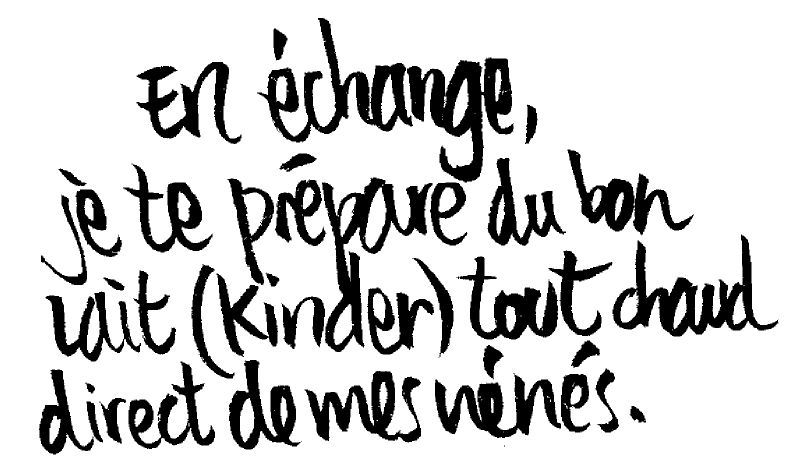 En échange,
je te prépare du bon
lait (Kinder) tout chaud
direct de mes nénés.